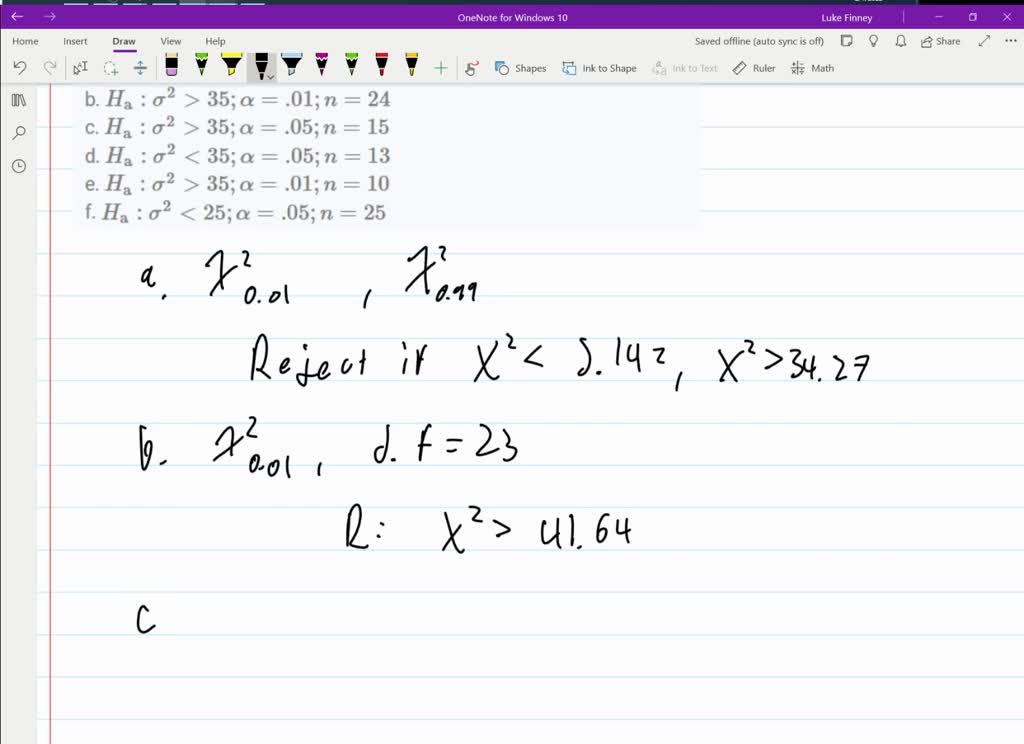 OneNote for Windows 10
Luke Finney
Home Insert Draw View Help
Saved offline (auto sync is off)
Share
Shapes Ink to Shape Ink to Text Ruler Math
b. Hₐ : σ² > 35; α = .01; n = 24
c. Hₐ : σ² > 35; α = .05; n = 15
d. Hₐ : σ² < 35; α = .05; n = 13
e. Hₐ : σ² > 35; α = .01; n = 10
f. Hₐ : σ² < 25; α = .05; n = 25
a. χ²0.01 , χ²0.99
Reject if χ² < 5.142, χ² > 34.27
b. χ²0.01, d.f = 23
R: χ² > 41.64
c